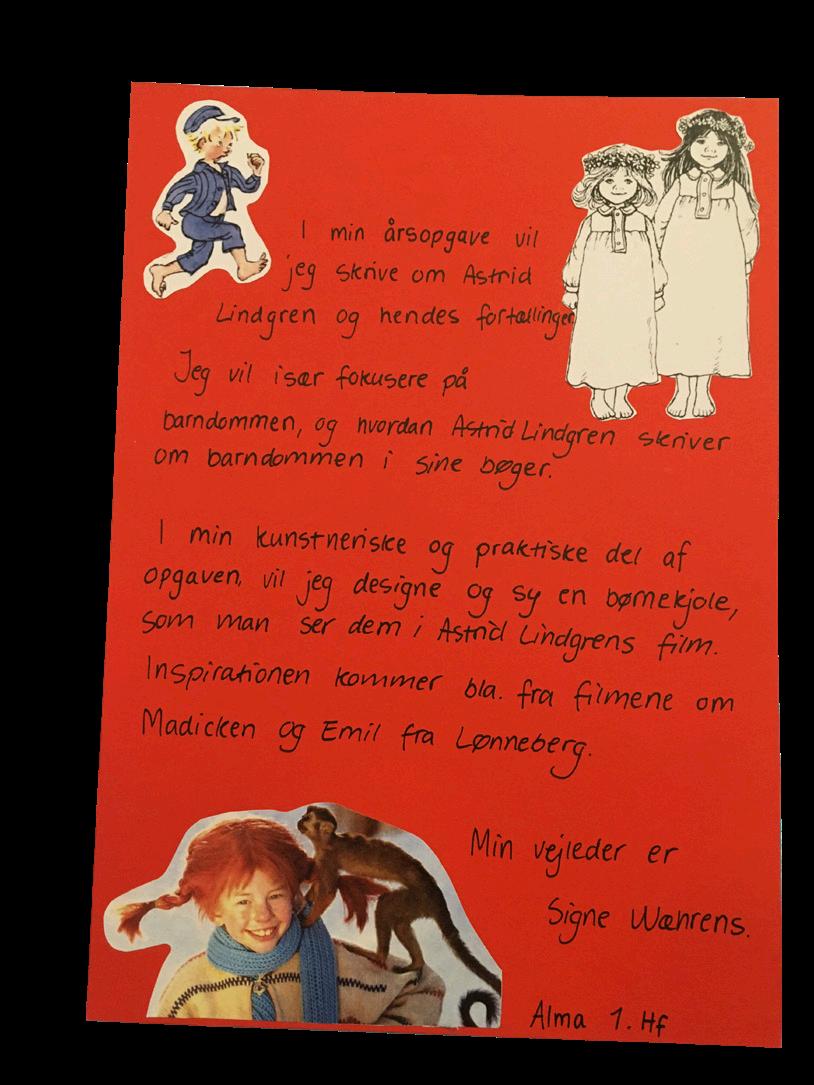 I min årsopgave vil
jeg skrive om Astrid
Lindgren og hendes fortællinger
Jeg vil især fokusere på
barndommen, og hvordan Astrid Lindgren skriver
om barndommen i sine bøger.
I min kunstneriske og praktiske del af
opgaven, vil jeg designe og sy en børnekjole,
som man ser dem i Astrid Lindgrens film.
Inspirationen kommer bla. fra filmene om
Madicken og Emil fra Lønneberg.
Min vejleder er
Signe Wæhrens.
Alma 1. Hf